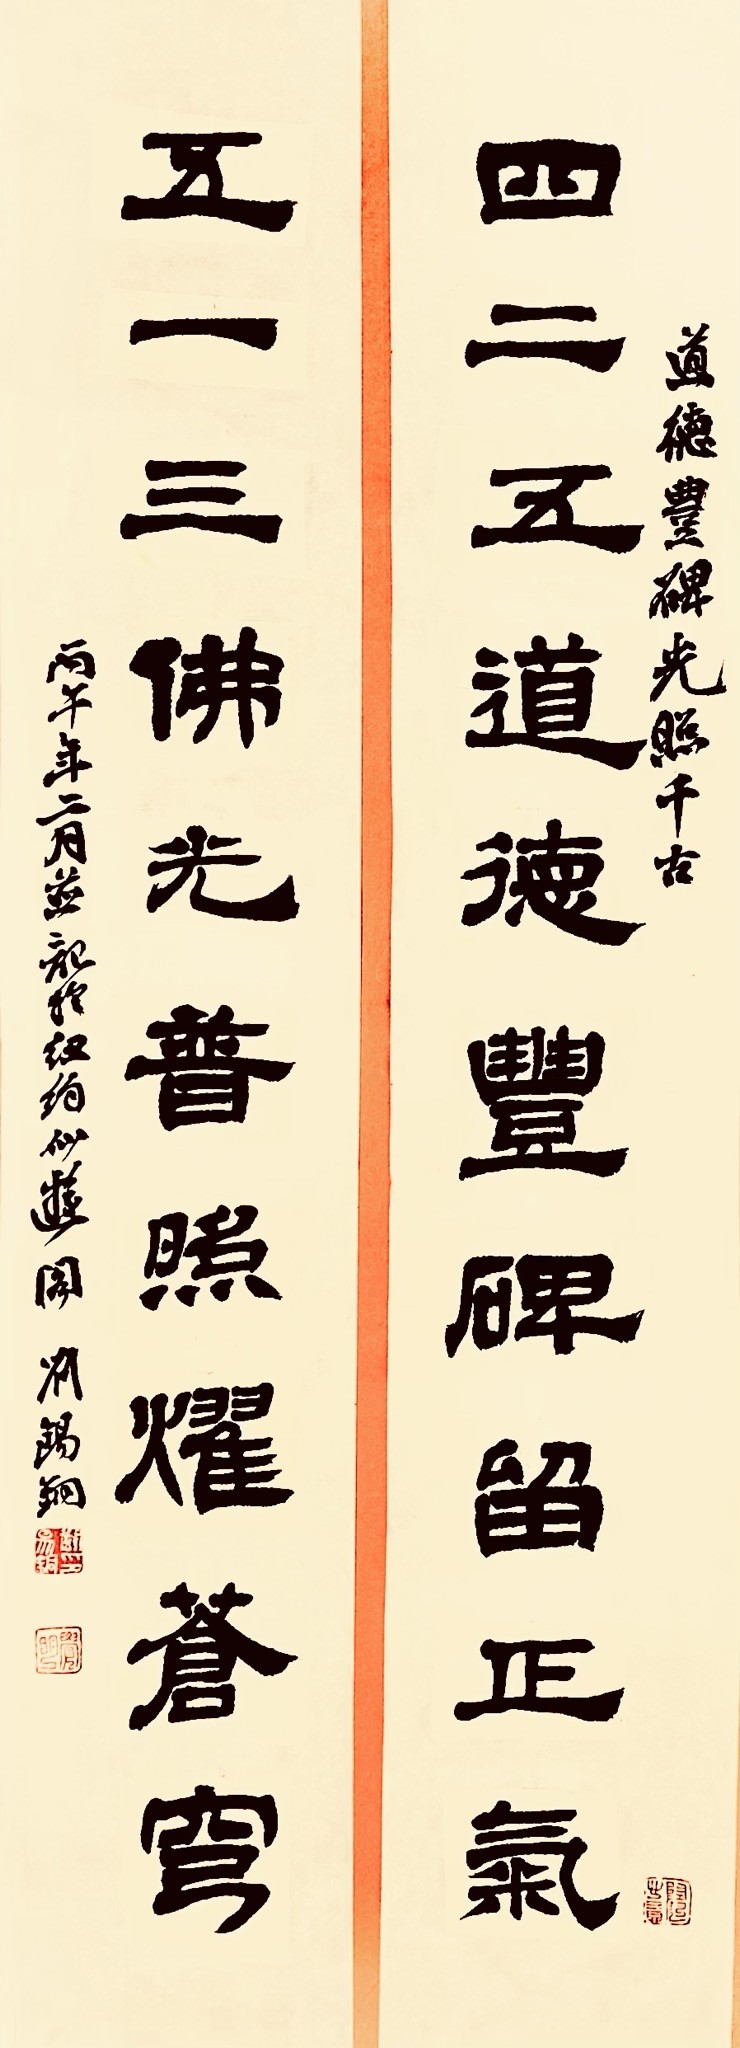 道德豐碑光照千古
四二五道德豐碑留正氣
五一三佛光普照耀蒼穹
丙午年二月並記於紐約仙遊閣 劉錫銅